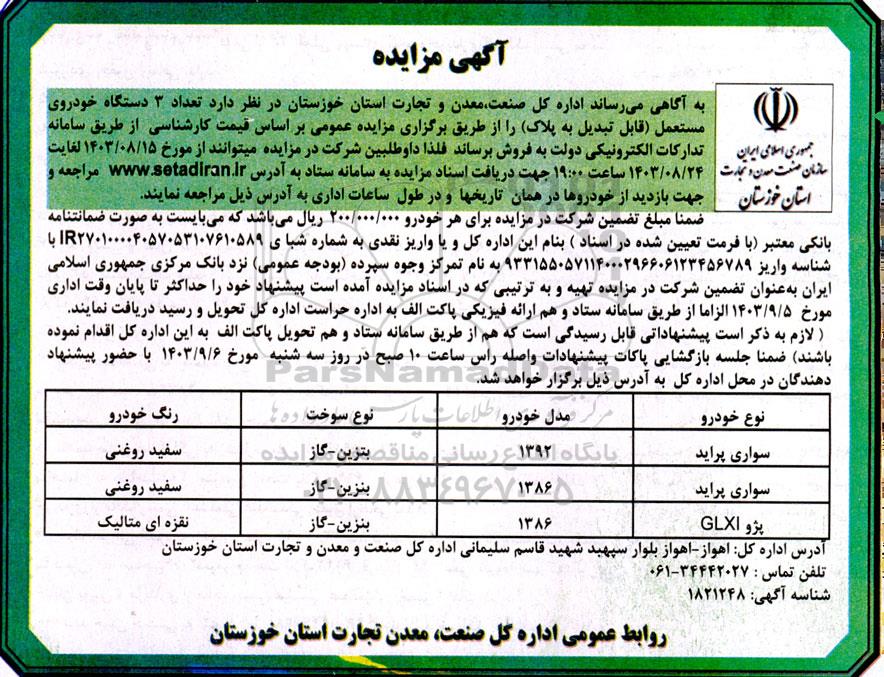 آگهی مزایده
جمهوری اسلامی ایران
سازمان صنعت معدن و تجارت
استان خوزستان
به آگاهی می‌رساند اداره کل صنعت،معدن و تجارت استان خوزستان در نظر دارد تعداد ۳ دستگاه خودروی
مستعمل (قابل تبدیل به پلاک) را از طریق برگزاری مزایده عمومی بر اساس قیمت کارشناسی از طریق سامانه
تدارکات الکترونیکی دولت به فروش برساند فلذا داوطلبین شرکت در مزایده میتوانند از مورخ ۱۴۰۳/۰۸/۱۵ لغایت
۱۴۰۳/۰۸/۲۴ ساعت ۱۹:۰۰ جهت دریافت اسناد مزایده به سامانه ستاد به آدرس www.setadiran.ir مراجعه و
جهت بازدید از خودروها در همان تاریخها و در طول ساعات اداری به آدرس ذیل مراجعه نمایند.
ضمنا مبلغ تضمین شرکت در مزایده برای هر خودرو ۲۰۰/۰۰۰/۰۰۰ ریال می‌باشد که می‌بایست به صورت ضمانتنامه
بانکی معتبر (با فرمت تعیین شده در اسناد ) بنام این اداره کل و یا واریز نقدی به شماره شبا ی IR۲۷۰۱۰۰۰۰۴۰۵۷۰۵۳۱۰۷۶۱۰۵۸۹ با
شناسه واریز ۹۳۳۱۵۵۰۵۷۱۱۴۰۰۰۲۹۶۶۰۶۱۲۳۴۵۶۷۸۹ به نام تمرکز وجوه سپرده (بودجه عمومی) نزد بانک مرکزی جمهوری اسلامی
ایران به‌عنوان تضمین شرکت در مزایده تهیه و به ترتیبی که در اسناد مزایده آمده است پیشنهاد خود را حداکثر تا پایان وقت اداری
مورخ ۱۴۰۳/۹/۵ الزاما از طریق سامانه ستاد و هم ارائه فیزیکی پاکت الف به اداره حراست اداره کل تحویل و رسید دریافت نمایند.
( لازم به ذکر است پیشنهاداتی قابل رسیدگی است که هم از طریق سامانه ستاد و هم تحویل پاکت الف به این اداره کل اقدام نموده
باشند) ضمنا جلسه بازگشایی پاکات پیشنهادات واصله راس ساعت ۱۰ صبح در روز سه شنبه مورخ ۱۴۰۳/۹/۶ با حضور پیشنهاد
دهندگان در محل اداره کل به آدرس ذیل برگزار خواهد شد.
ParsNamadData
پایگاه اطلاع رسانی مناقصه و مزایده
نوع خودرو مدل خودرو نوع سوخت رنگ خودرو
سواری پراید ۱۳۹۲ بنزین-گاز سفید روغنی
سواری پراید ۱۳۸۶ بنزین-گاز سفید روغنی
پژو GLXI ۱۳۸۶ بنزین-گاز نقزه ای متالیک
آدرس اداره کل: اهواز-اهواز بلوار سپهبد شهید قاسم سلیمانی اداره کل صنعت و معدن و تجارت استان خوزستان
تلفن تماس : ۳۴۴۴۲۰۲۷-۰۶۱
شناسه آگهی: ۱۸۲۱۲۴۸
روابط عمومی اداره کل صنعت، معدن تجارت استان خوزستان